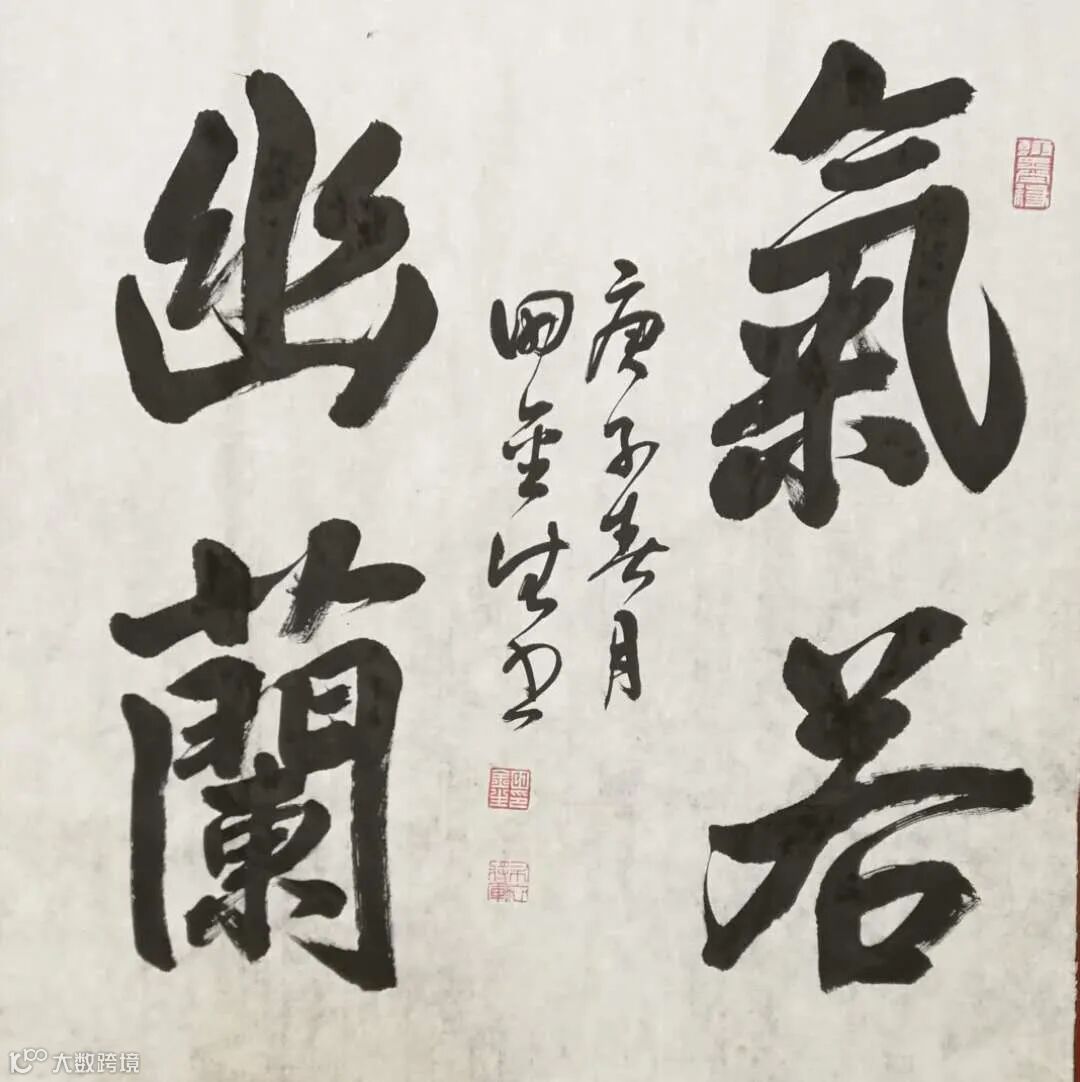 氣若
幽蘭
庚子春月
田金生书
大数跨境